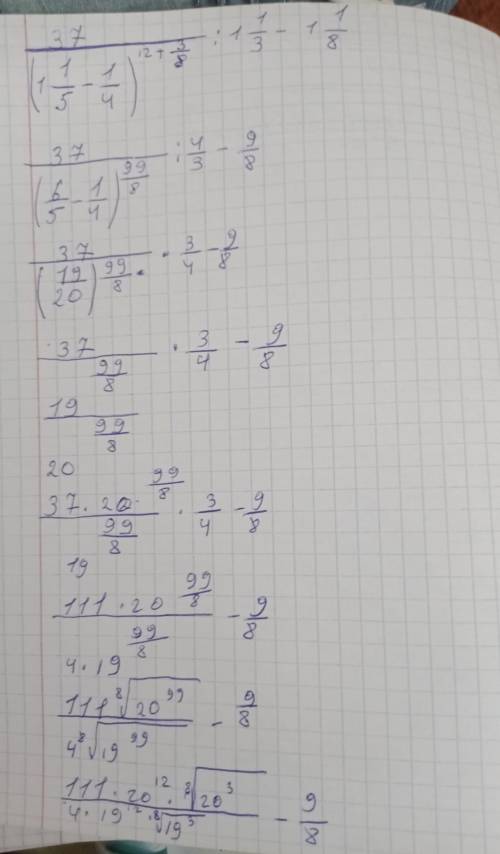 37/(1 1/5 − 1/4)^(12 + 3/8) : 1 1/3 − 1 1/8
37/(6/5 − 1/4)^(99/8) : 4/3 − 9/8
37/(19/20)^(99/8) · 3/4 − 9/8
37/(19^(99/8)/20^(99/8)) · 3/4 − 9/8
37·20^(99/8)/19^(99/8) · 3/4 − 9/8
111·20^(99/8)/(4·19^(99/8)) − 9/8
111 ⁸√(20^99)/(4 ⁸√(19^99)) − 9/8
111·20^12·⁸√(20^3)/(4·19^12·⁸√(19^3)) − 9/8